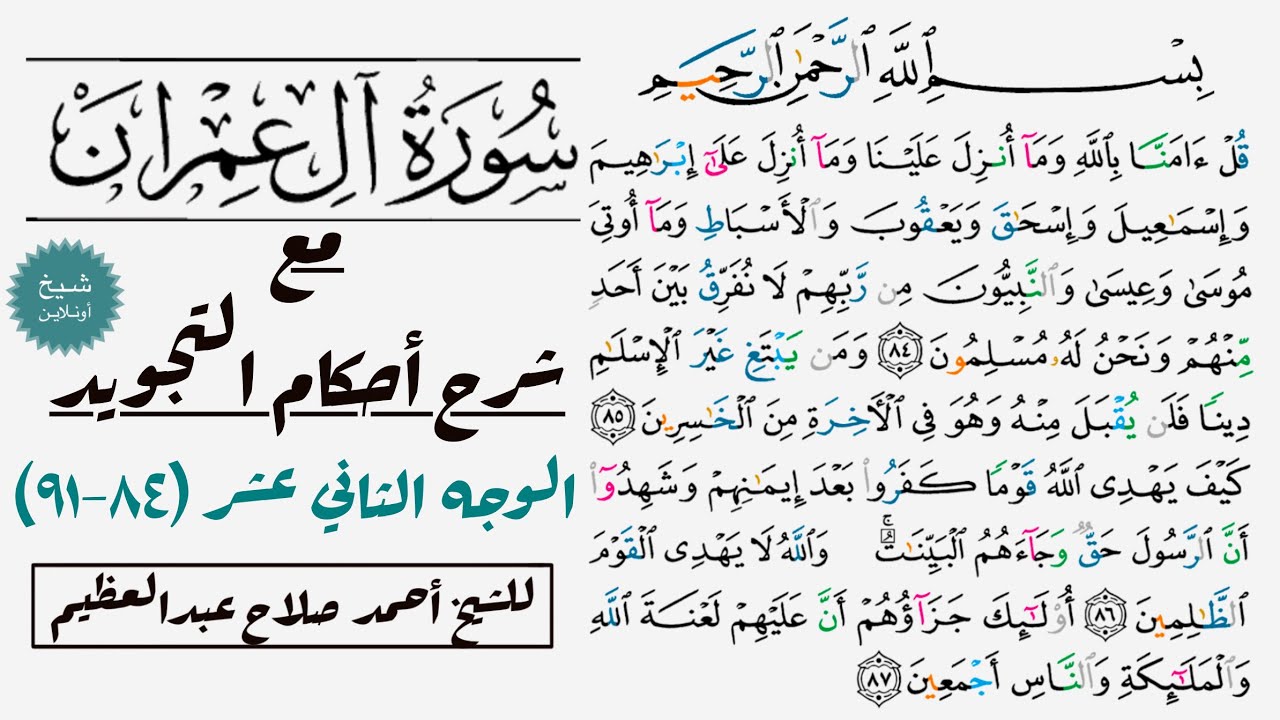 بِسْمِ ٱللَّهِ ٱلرَّحْمَٰنِ ٱلرَّحِيمِ
سُورَةُ آلِ عِمْرَانَ
مع
شرح أحكام التجويد
الوجه الثاني عشر (٨٤-٩١)
للشيخ أحمد صلاح عبدالعظيم
شيخ
أونلاين
قُلْ ءَامَنَّا بِٱللَّهِ وَمَآ أُنزِلَ عَلَيْنَا وَمَآ أُنزِلَ عَلَىٰٓ إِبْرَٰهِيمَ
وَإِسْمَٰعِيلَ وَإِسْحَٰقَ وَيَعْقُوبَ وَٱلْأَسْبَاطِ وَمَآ أُوتِىَ
مُوسَىٰ وَعِيسَىٰ وَٱلنَّبِيُّونَ مِن رَّبِّهِمْ لَا نُفَرِّقُ بَيْنَ أَحَدٍ
مِّنْهُمْ وَنَحْنُ لَهُۥ مُسْلِمُونَ ٨٤ وَمَن يَبْتَغِ غَيْرَ ٱلْإِسْلَٰمِ
دِينًا فَلَن يُقْبَلَ مِنْهُ وَهُوَ فِى ٱلْأَخِرَةِ مِنَ ٱلْخَٰسِرِينَ ٨٥
كَيْفَ يَهْدِى ٱللَّهُ قَوْمًا كَفَرُوا۟ بَعْدَ إِيمَٰنِهِمْ وَشَهِدُوٓا۟
أَنَّ ٱلرَّسُولَ حَقٌّ وَجَآءَهُمُ ٱلْبَيِّنَٰتُ ۚ وَٱللَّهُ لَا يَهْدِى ٱلْقَوْمَ
ٱلظَّٰلِمِينَ ٨٦ أُو۟لَٰٓئِكَ جَزَآؤُهُمْ أَنَّ عَلَيْهِمْ لَعْنَةَ ٱللَّهِ
وَٱلْمَلَٰٓئِكَةِ وَٱلنَّاسِ أَجْمَعِينَ ٨٧